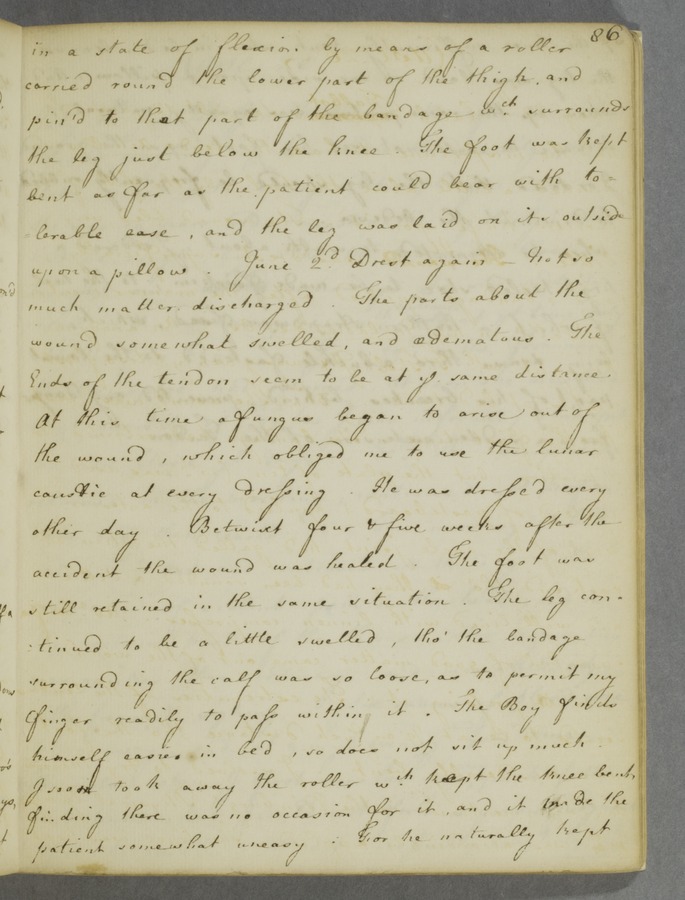 86
in a state of flexion by means of a roller
carried round the lower part of the thigh, and
pin'd to that part of the bandage wch. surrounds
the leg just below the knee. The foot was kept
bent as far as the patient could bear with to=
=lerable ease, and the leg was laid on its outside
upon a pillow. June 2d. Drest again - Not so
much matter discharged. The parts about the
wound somewhat swelled, and œdematous. The
Ends of the tendon seem to be at ye. same distance.
At this time a fungus began to arise out of
the wound, which obliged me to use the lunar
caustic at every dressing. He was dresse'd every
other day. Betwixt four & five weeks after the
accident the wound was healed. The foot was
still retained in the same situation. The leg con-
:tinued to be a little swelled, tho' the bandage
surrounding the calf was so loose, as to permit my
finger readily to pass within it. The Boy finds
himself easier in bed, so does not sit up much.
I soon took away the roller wch. kept the knee bent,
finding there was no occasion for it, and it made the
patient somewhat uneasy: For he naturally kept